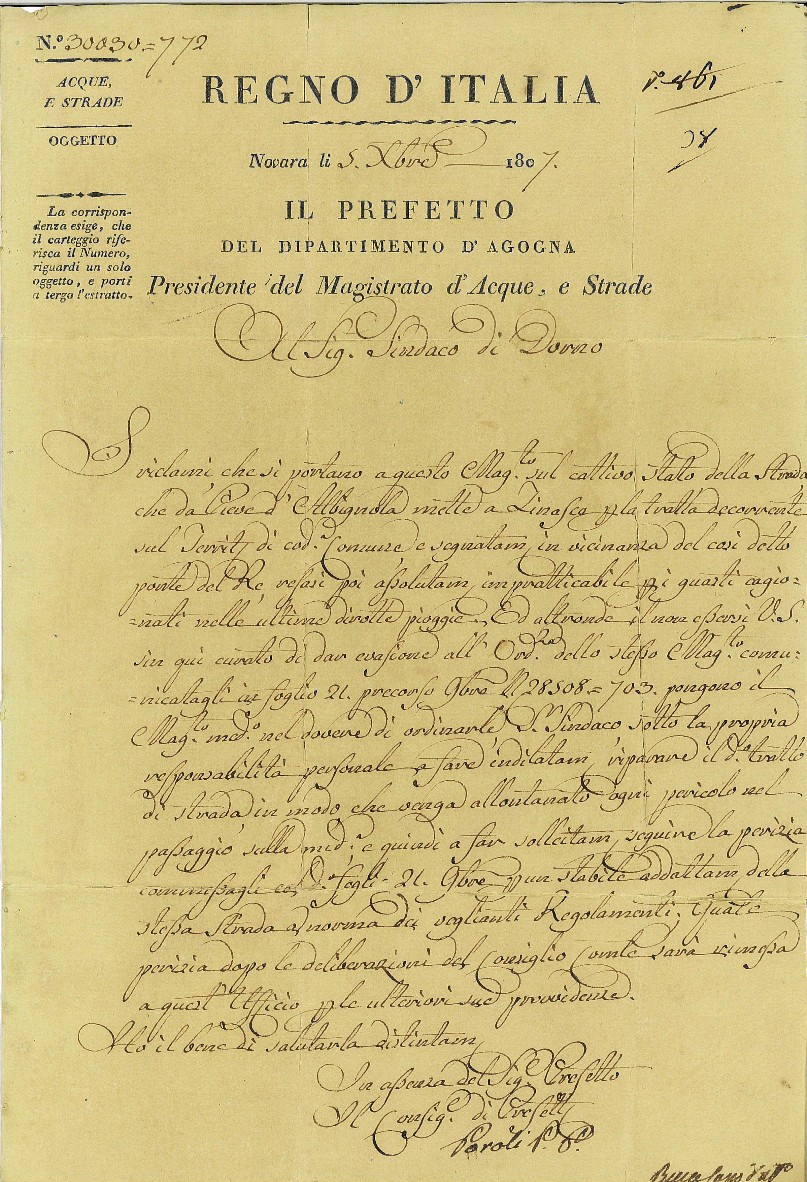 N.º 30030=772
ACQUE,
E STRADE
OGGETTO
La corrispon-
denza esige, che
il carteggio rife-
risca il Numero,
riguardi un solo
oggetto, e porti
a tergo l'estratto.
REGNO D' ITALIA
Novara li 5. Xbre 1807.
IL PREFETTO
DEL DIPARTIMENTO D' AGOGNA
Presidente del Magistrato d'Acque, e Strade
Al Sig.r Sindaco di Dorno
I riclami che si portano a questo Mag.to sul cattivo stato della Strada
che da Pieve d' Albignola mette a Zinasco p la tratta decorrente
sul Territ. di cod.o Comune e segnatam. in vicinanza del così detto
ponte del Re, resasi poi assolutam. impratticabile p i guasti cagio-
=nati nelle ultime dirotte pioggie. Ed altronde il non essersi V.S.
sin qui curato di dar evasione all' Ord.za dello stesso Mag.to comu-
=nicatagli in foglio 21. precorso 9bre N. 28508=703. pongono il
Mag.to med.o nel dovere di ordinarle Sr. Sindaco sotto la propria
responsabilità personale a fare indilatam. riparare il d.o tratto
di strada in modo che venga allontanato ogni pericolo nel
passaggio sulla med.a e quindi a far sollecitam. seguire la perizia
commessagli col d.o fogli. 21. 9bre p un stabile addattam. della
stessa Strada a norma dei veglianti Regolamenti. Quale
perizia dopo le deliberazioni del Consiglio Com.le sarà rimessa
a quest' Ufficio p le ulteriori sue provvidenze.
Ho il bene di salutarla distintam.
In assenza del Sig.e Prefetto
Il Consig.e di Prefett.
Paroli